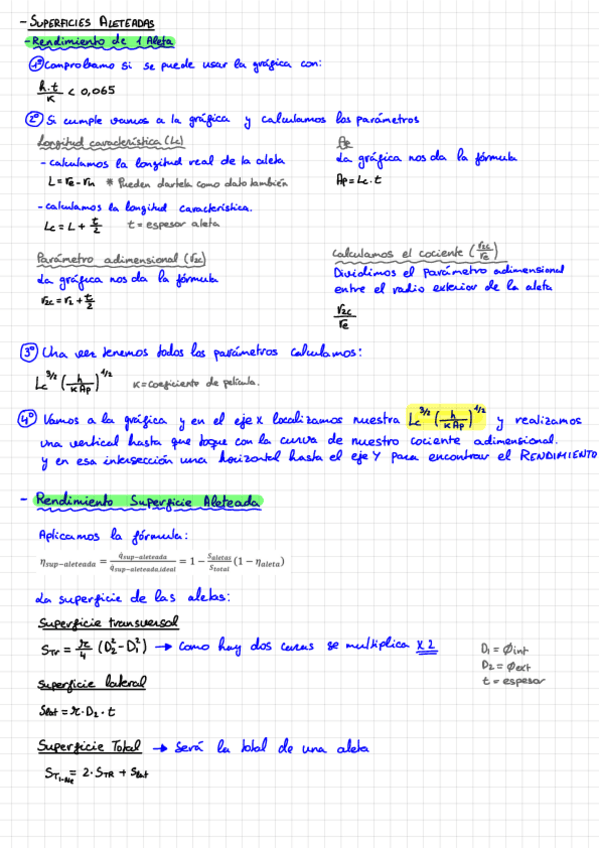 - SUPERFICIES ALETEADAS
- Rendimiento de 1 Aleta
1º Comprobamo si se puede usar la gráfica con:
h·t/K < 0,065
2º Si cumple vamos a la gráfica y calculamos los parámetros
Longitud característica (Lc)
- calculamos la longitud real de la aleta
L = re - rin * Pueden dartela como dato también
- calculamos la longitud característica.
Lc = L + t/2 t = espesor aleta
Ap
La gráfica nos da la fórmula
Ap = Lc · t
Parámetro adimensional (r2c)
La gráfica nos da la fórmula
r2c = r2 + t/2
Calculamos el cociente (r2c/re)
Dividimos el parámetro adimensional
entre el radio exterior de la aleta
r2c/re
3º Una vez tenemos todos los parámetros calculamos:
Lc^3/2 (h/K Ap)^1/2 K = coeficiente de película.
4º Vamos a la gráfica y en el eje x localizamos nuestra Lc^3/2 (h/K Ap)^1/2 y realizamos
una vertical hasta que toque con la curva de nuestro cociente adimensional.
y en esa intersección una horizontal hasta el eje Y para encontrar el RENDIMIENTO
- Rendimiento Superficie Aleteada
Aplicamos la fórmula:
η_sup-aleteada = q̇_sup-aleteada/q̇_sup-aleteada,ideal = 1 - S_aletas/S_total (1 - η_aleta)
La superficie de las aletas:
Superficie transversal
S_TR = π/4 (D2² - D1²) → como hay dos caras se multiplica x 2
D1 = ∅int
D2 = ∅ext
t = espesor
Superficie lateral
Slat = π · D2 · t
Superficie Total → Será la total de una aleta
S_T1-Ale = 2 · S_TR + Slat